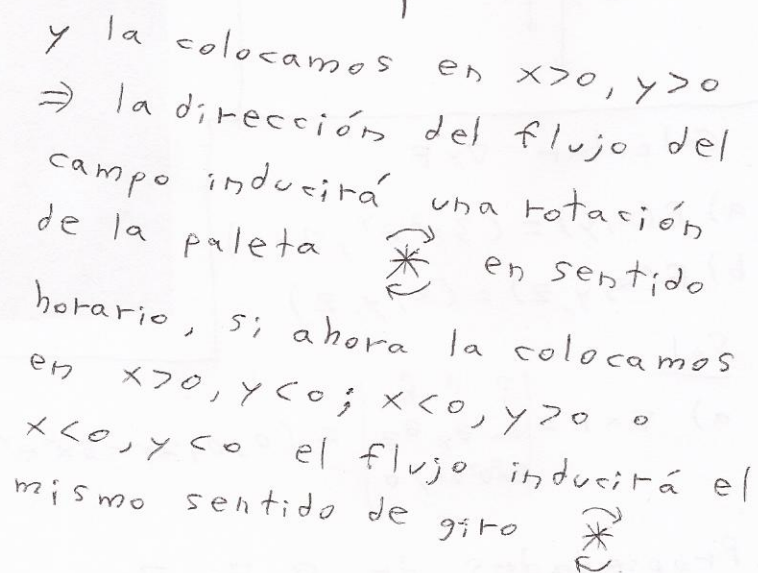 y la colocamos en x>0, y>0
⇒ la dirección del flujo del
campo inducirá una rotación
de la paleta en sentido
horario, si ahora la colocamos
en x>0, y<0; x<0, y>0 o
x<0, y<0 el flujo inducirá el
mismo sentido de giro